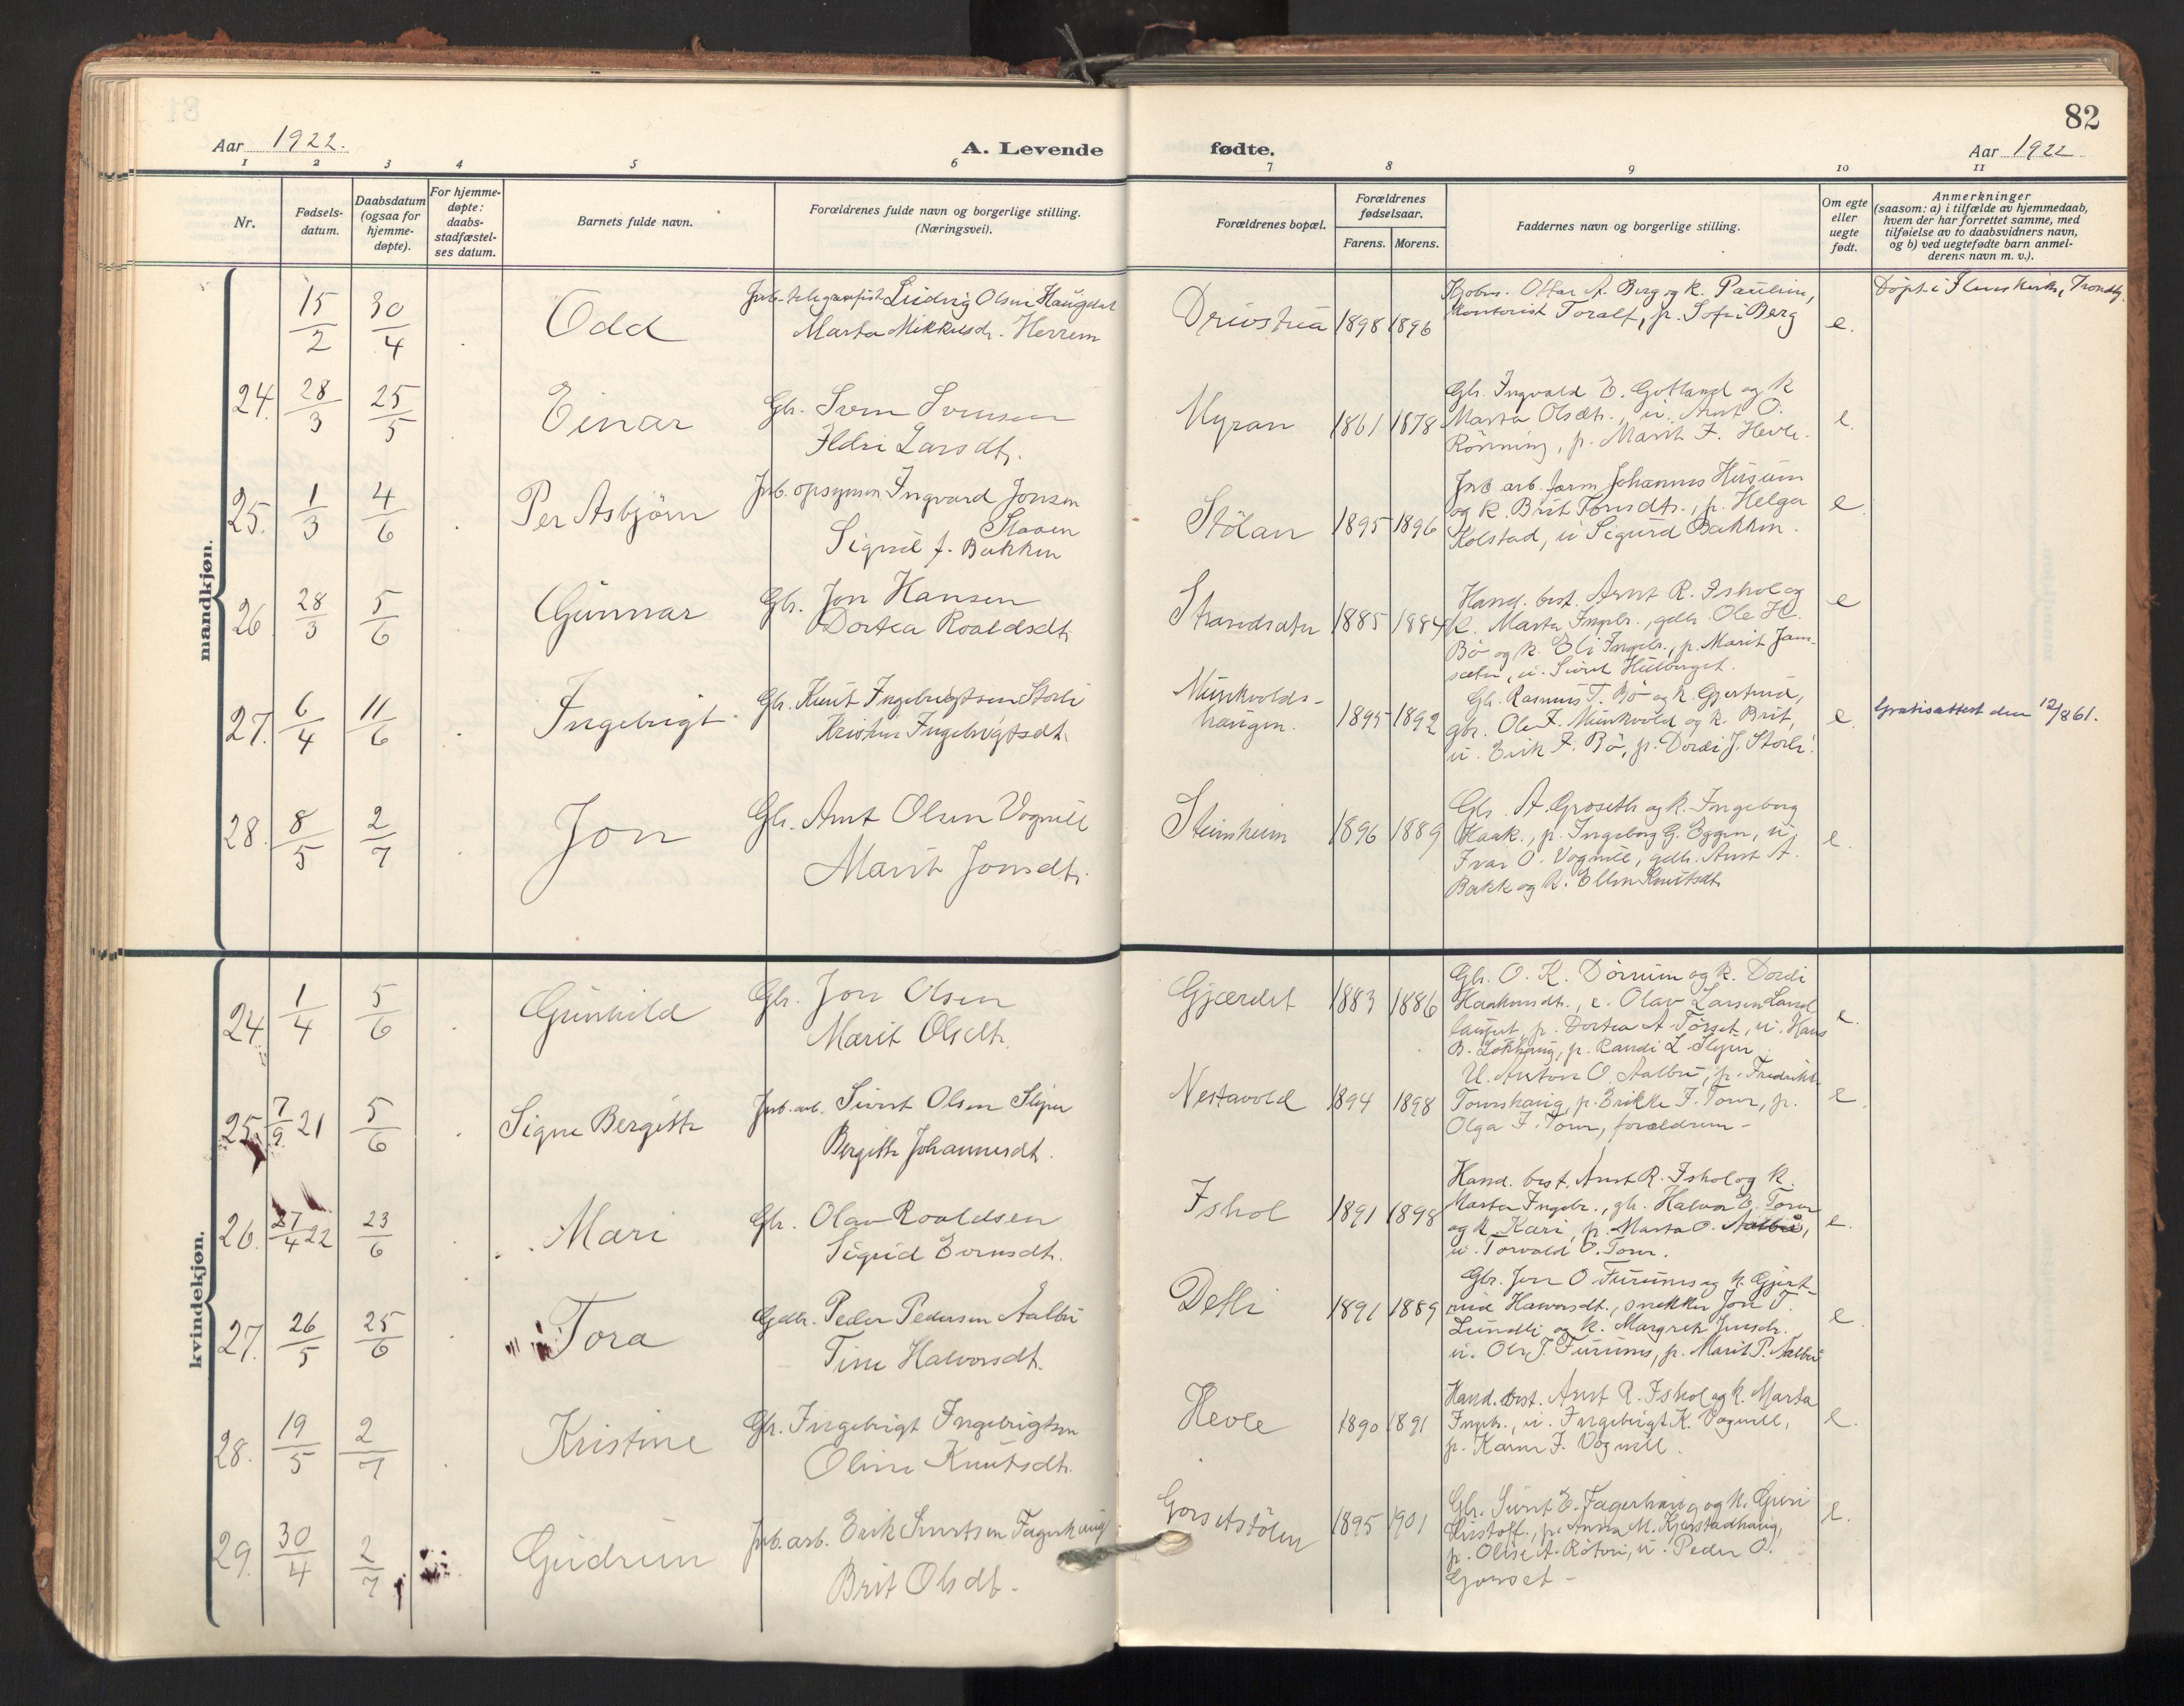 82
Aar 1922.
A. Levende
fødte.
Aar 1922
1 2 3 4 5 6 7 8 9 10 11
Nr.
Fødsels-
datum.
Daabsdatum
(ogsaa for
hjemme-
døpte).
For hjemme-
døpte:
daabs-
stadfæstel-
ses datum.
Barnets fulde navn.
Forældrenes fulde navn og borgerlige stilling.
(Næringsvei).
Forældrenes bopæl.
Forældrenes
fødselsaar.
Farens. Morens.
Faddernes navn og borgerlige stilling.
Om egte
eller
uegte
født.
Anmerkninger
(saasom: a) i tilfælde av hjemmedaab,
hvem der har forrettet samme, med
tilføielse av to daabsvidners navn,
og b) ved uegtefødte barn anmel-
derens navn m. v.).
mandkjøn.
15/2 30/4 Odd
Jrb. telegrafist Ludvig Olsen Haugdal
Marta Mikkelsdr. Herrem
Drivstua 1898 1896
Ottar A. Berg og k. Pauline,
Kontorist Toralf, p. Sofie Berg
e.
Døpt i Ilens kirke, Trondhj.
24. 28/3 25/5 Einar
Gbr. Sven Svensen
Ildri Larsdt.
Myran 1861 1878
Gbr. Ingvald E. Gotland og k
Marta Olsdt., u. Arnt O.
Rönning, p. Marit I. Hevle.
e.
25. 1/3 4/6 Per Asbjörn
Jrb. opsynsm Ingvard Jonsen
Staaen
Signil f. Bakken
Stölan 1895 1896
Jrb arb. form Johannes Husum
og k. Brit Tomsdtr., p. Helga
Kolstad, u Sigurd Bakken.
e
26 28/3 5/6 Gunnar
Gbr. Jon Hansen
Dortea Roaldsdt.
Strandsæter 1885 1884
Hand. best. Arnt R. Ishol og
k. Marta Ingebr., gdbr. Ole H.
Bö og k. Eli Ingebr., p. Marit Jam-
sæter, u. Sivert
e
27. 6/4 11/6 Ingebrigt.
Gbr. Knut Ingebrigtsen Storli
Kristine Ingebrigtsdt.
Munkvolds-
haugen. 1895 1892
Gbr. Rasmus T. Bö og k. Gjertrud,
gbr. Ole I. Munkvold og k. Brit,
u. Erik I. Bö, p. Dordi J. Storli.
e.
Gratisattest den 12/8 61.
28. 8/5 2/7 Jon
Gbr. Arnt Olsen Vognill
Marit Jonsdt.
Steinheim 1896 1889
Gbr. A. Groseth og k. Ingeborg
Haak., p. Ingeborg G. Eggen, u.
Ivar O. Vognill, gdbr. Arnt A.
Bakk og k. Ellen Knutsdt.
e.
kvindekjøn.
24. 1/4 5/6 Gunhild
Gbr. Jon Olsen
Marit Olsdt.
Gjærdet 1883 1886
Gbr. O. K. Dörrum og k. Dordi
Haakonsdt., e. Olav Larsen Land
p. Dortea A. Törset, u. Hans
B. Lökhaug, p. Randi L.
e.
25. 7/9 21 5/6 Signe Bergitte
Jrb. arb. Sivert Olsen
Bergitte Johannesdt.
Nestavold 1894 1898
U. Anton O. Aalbu, p. Fredrikke
Tourshaug, p. Erikke I. Tour, p.
Olga I. Tour, forældrene -
e.
26. 27/4 22 23/6 Mari
Gbr. Olav Roaldsen
Sigrid Evensdt.
Ishol 1891 1898
Hand. best. Arnt R. Ishol og k.
Marta Ingebr., gbr. Halvor E. Tour
og k. Kari, p. Marta O. Aalbu,
u. Torvald O. Tour.
e.
27. 26/5 25/6 Tora
Gdbr. Peder Pedersen Aalbu
Tine Halvorsdt.
Detli 1891 1889
Gbr. Jon O. Furunes og k. Gjert-
rud Havorsdt., snekker Jon T.
Lundli og k. Margrete Jensdr.
u. Ole J. Furunes, p. Marit P. Aalbu
e.
28. 19/5 2/7 Kristine
Gbr. Ingebrigt Ingebrigtsen
Oline Knutsdt.
Hevle 1890 1891
Hand. best. Arnt R. Ishol og k. Marta
Ingebr., u. Ingebrigt K. Vognill,
p. Karen I. Vognill.
e.
29. 30/4 2/7 Gudrun
Jrb. arb. Erik Sivertsen Fagerhaug
Brit Olsdt.
Gorsetstölen 1895 1901
Gbr. Sivert E. Fagerhaug og k. Guri
Kristoff., p. Anna M. Kjerstadhaug,
p. Olise A. u. Peder O.
Gorset -
e.